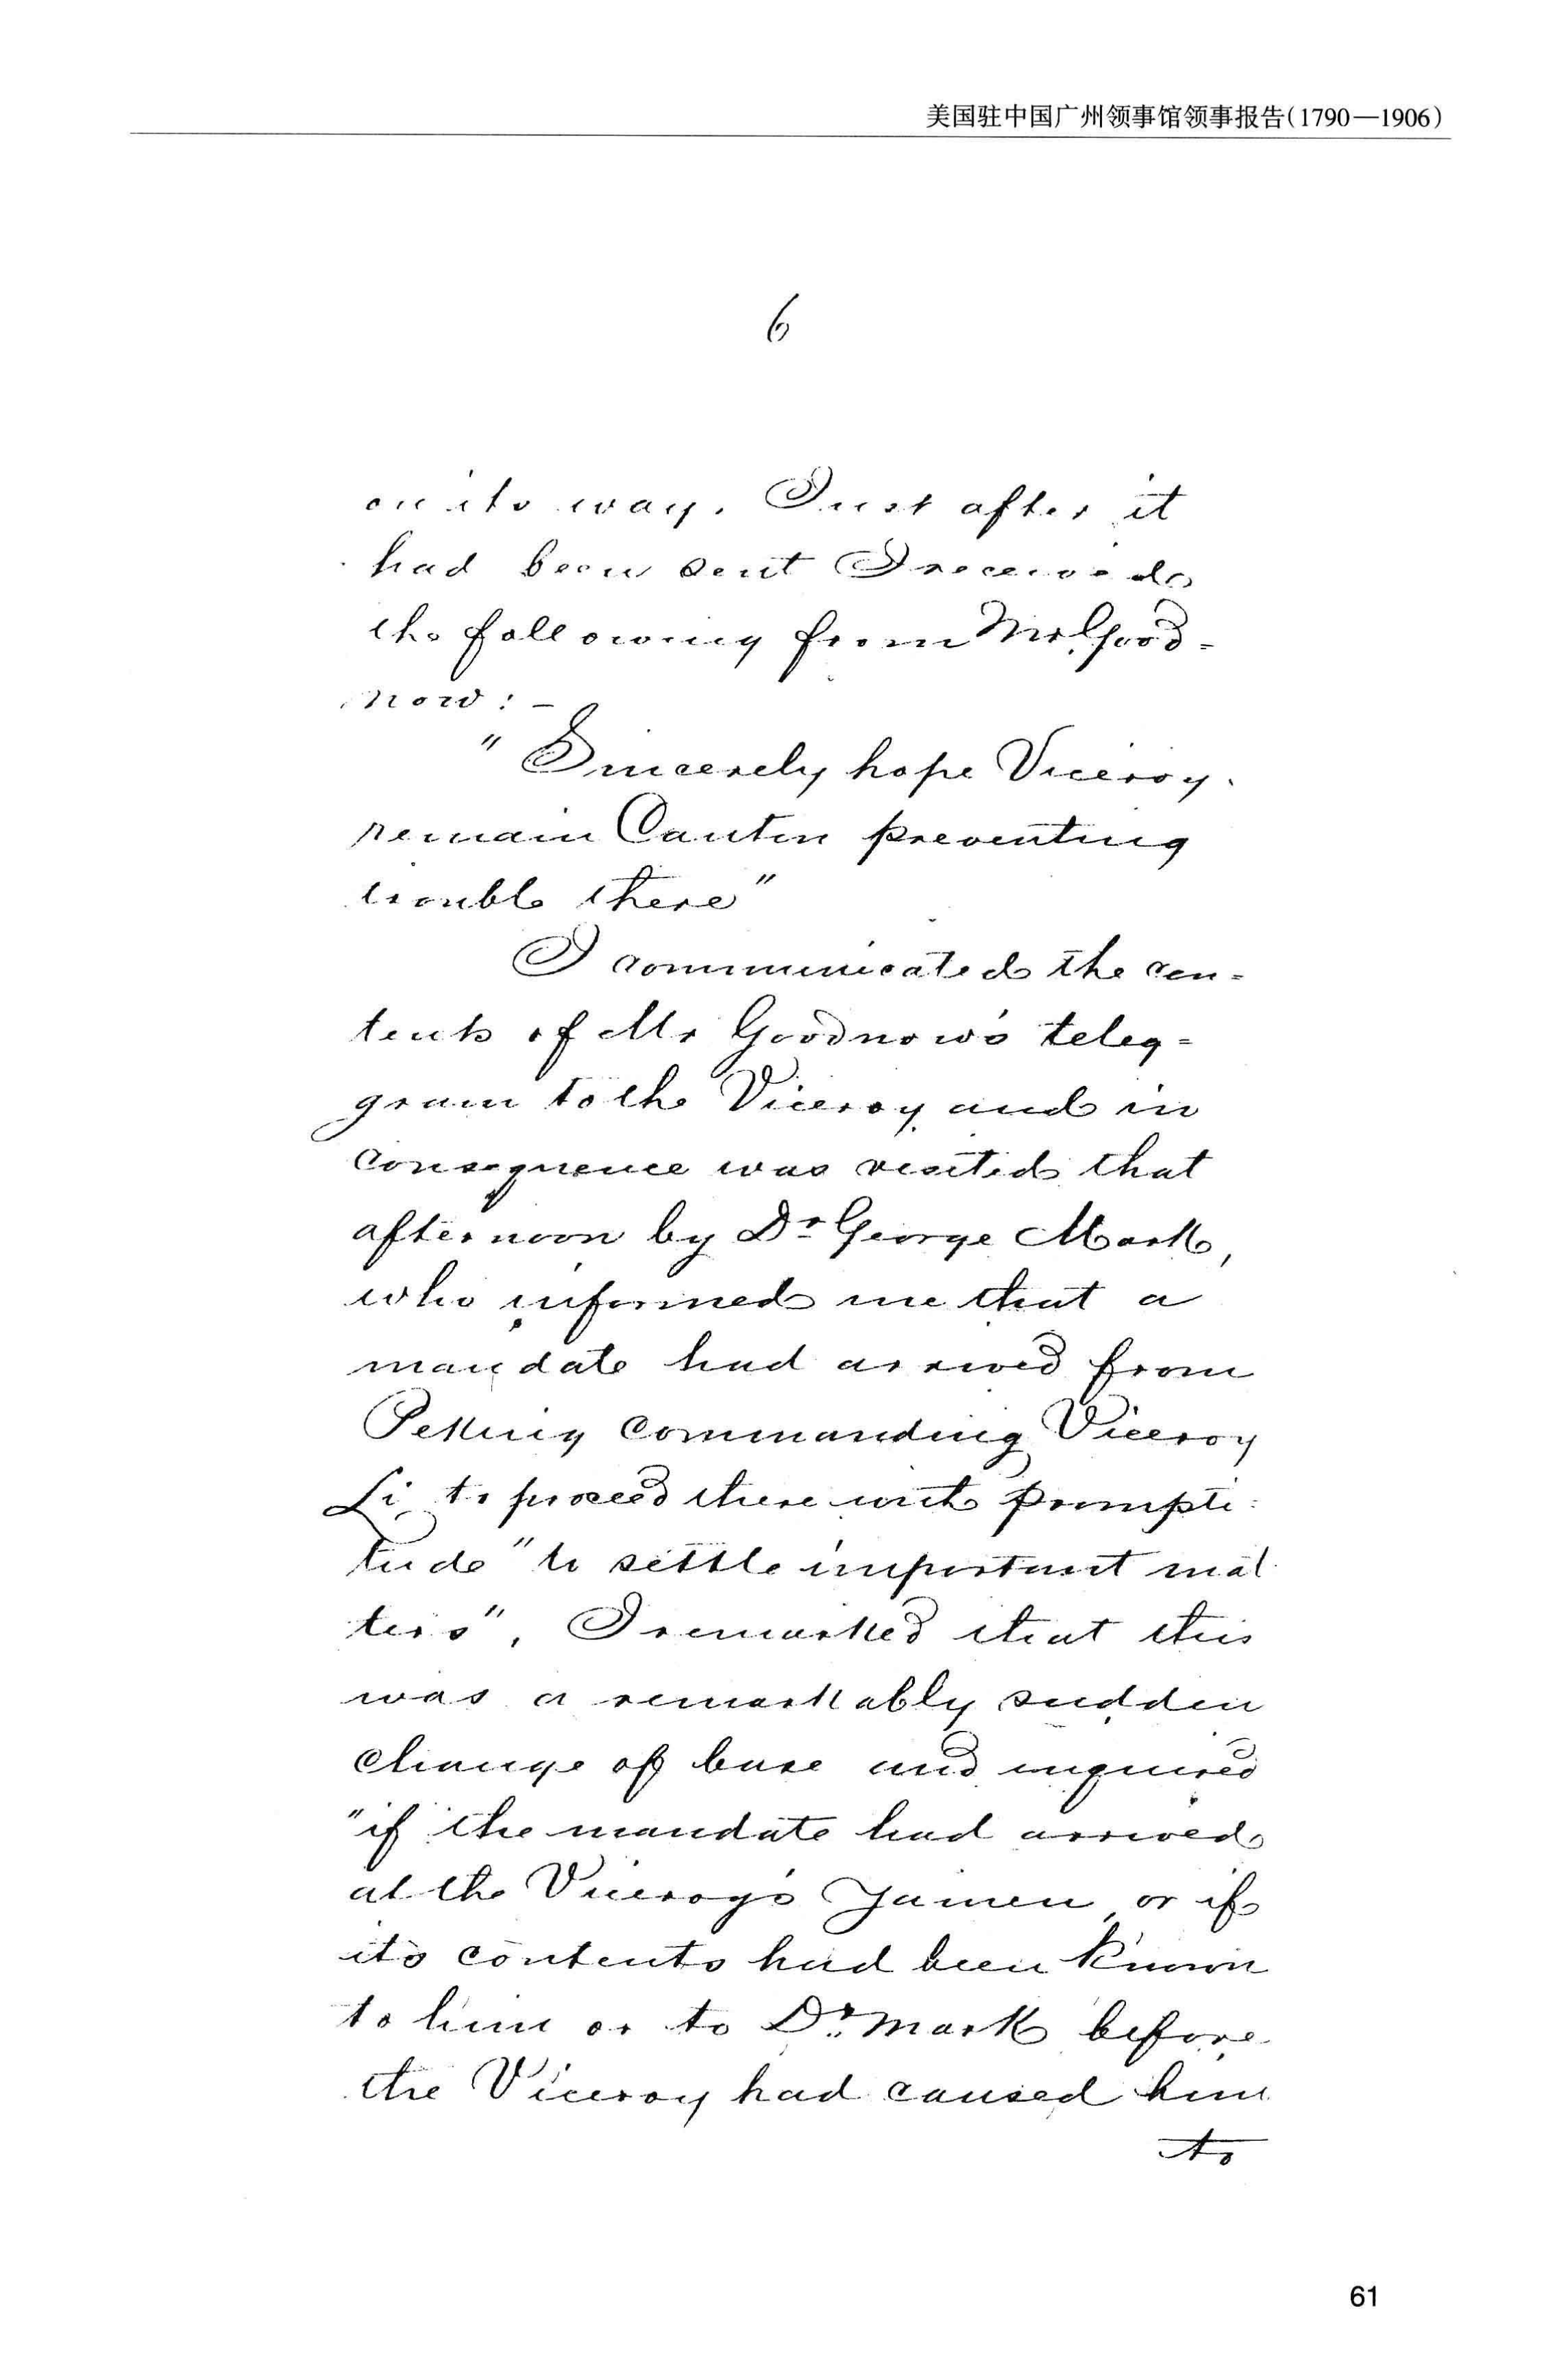 美国驻中国广州领事馆领事报告(1790—1906)
6
on its way. Just after it
had been sent I received
the following from Mr. Good-
now: —
" Sincerely hope Viceroy
remain Canton preventing
trouble there"
I communicated the con-
tents of Mr Goodnow's teleg-
gram to the Viceroy and in
consequence was visited that
afternoon by Dr George Mark,
who informed me that a
mandate had arrived from
Peking commanding Viceroy
Li to proceed there with prompti-
tude "to settle important mat
ters", I remarked that this
was a remarkably sudden
change of base and inquired
"if the mandate had arrived
at the Viceroy's Yamen, or if
its contents had been known
to him or to Dr. Mark before
the Viceroy had caused him
to
61